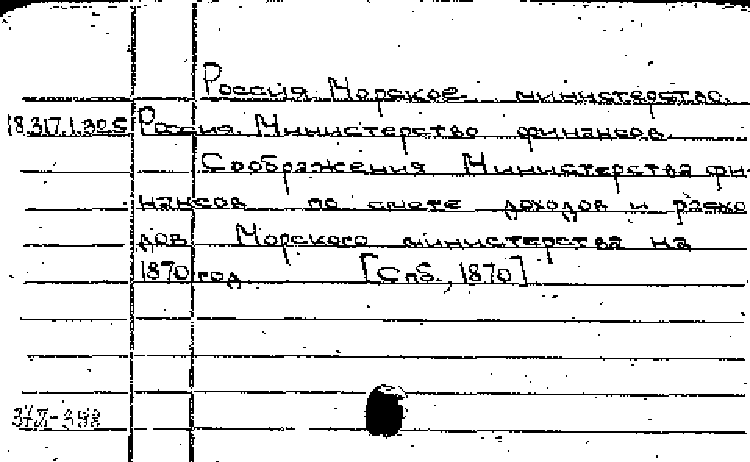 Россия. Морское министерство.
18.317.1.305 Россия. Министерство финансов.
Соображения Министерства фи-
нансов по смете доходов и расхо
дов Морского министерства на
1870 год [Спб., 1870]